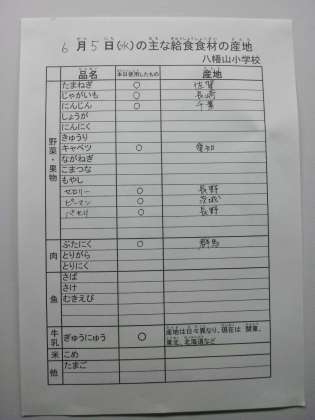 6月5日(水)の主な給食食材の産地
八幡山小学校
品名 本日使用したもの 産地
野菜・果物
たまねぎ ○ 佐賀
じゃがいも ○ 長崎
にんじん ○ 千葉
しょうが
にんにく
きゅうり
キャベツ ○ 愛知
ながねぎ
こまつな
もやし
セロリー ○ 長野
ピーマン ○ 茨城
パセリ ○ 長野
肉
ぶたにく ○ 群馬
とりがら
とりにく
魚
さば
さけ
むきえび
牛乳 ぎゅうにゅう ○ 産地は日々異なり、現在は 関東、
東北、北海道など
米 こめ
他 たまご